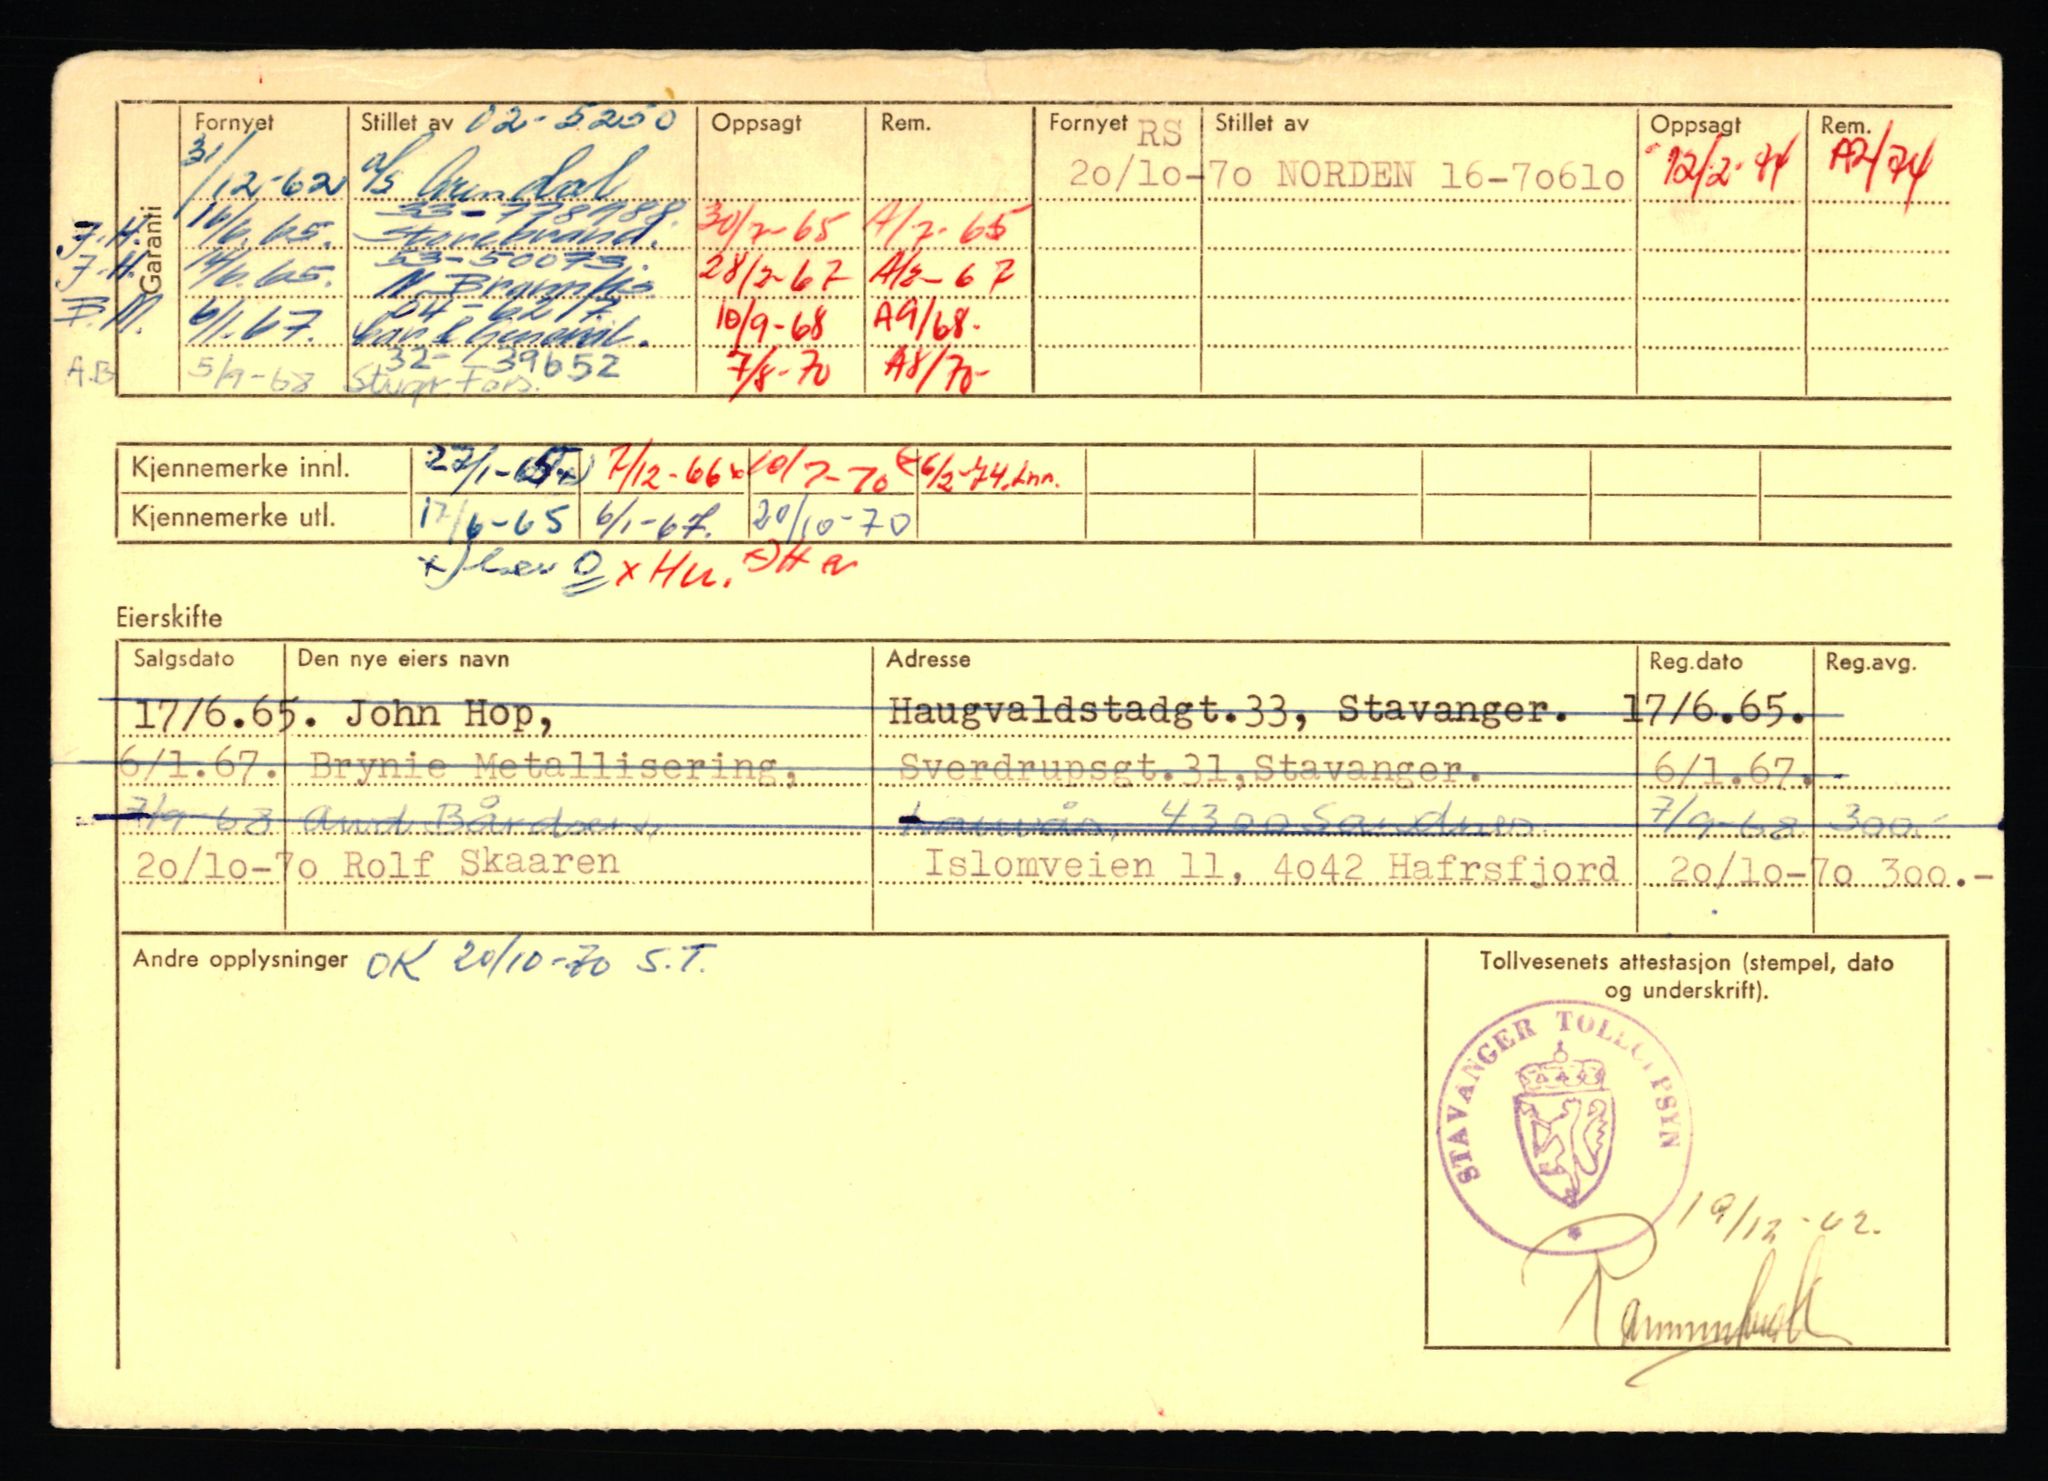 Garanti
Fornyet Stillet av 02-5250 Oppsagt Rem. Fornyet RS Stillet av Oppsagt Rem.
31/12-62 a/s Arendal 20/10-70 NORDEN 16-70610 12/2-74 A2/74
J.H. 16/6.65. 33-778988. Storebrand. 30/7-65 A/7-65
J.H. 14/6.65. 53-50073. 28/2-67 A/2-67
B.M. 6/1.67. 04-6217 10/9-68 A9/68.
A.B 5/9-68 32-39652 7/8-70 A8/70-
Kjennemerke innl. 27/1-65 7/12-66 x 10/7-70 6/2-74. Inn.
Kjennemerke utl. 17/6-65 6/1-67. 20/10-70
Eierskifte
Salgsdato Den nye eiers navn Adresse Reg.dato Reg.avg.
17/6.65. John Hop, Haugvaldstadgt.33, Stavanger. 17/6.65.
6/1.67. Brynie Metallisering, Sverdrupsgt.31,Stavanger. 6/1.67.
7/9-68 Aud Bårdsen, 4300 Sandnes 7/9-68 300.-
20/10-70 Rolf Skaaren Islomveien 11, 4042 Hafrsfjord 20/10-70 300.-
Andre opplysninger OK 20/10-70 S.T.
Tollvesenets attestasjon (stempel, dato
og underskrift).
STAVANGER TOLLOPPSYN
19/12-62.